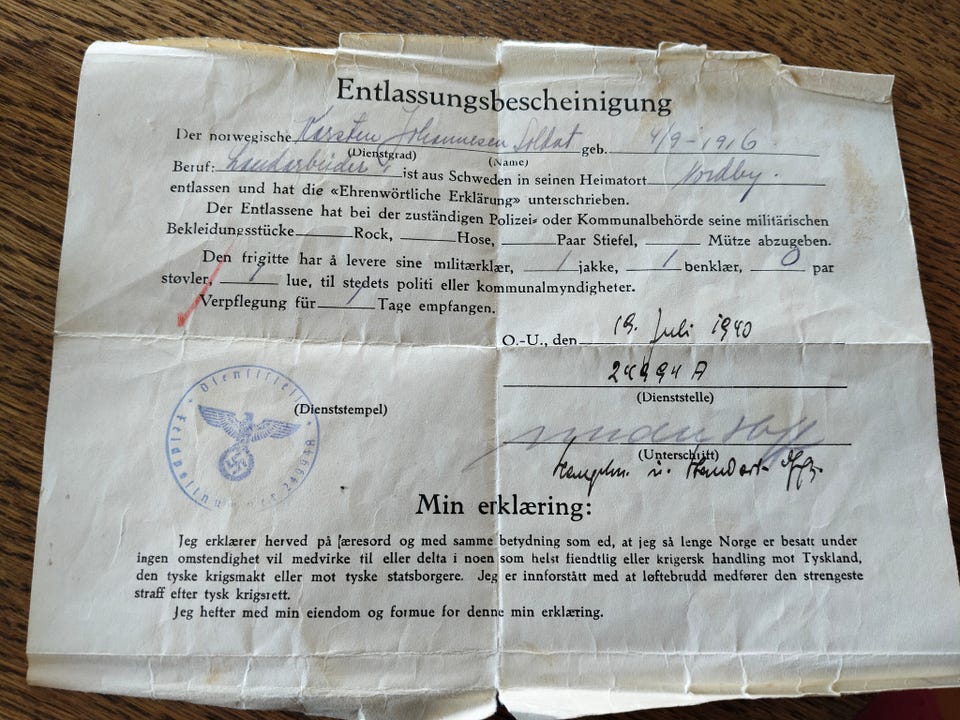 Entlassungsbescheinigung
Der norwegische Karsten Johannesen Soldat geb. 4/9-1916
(Dienstgrad) (Name)
Beruf: Landarbeider ist aus Schweden in seinen Heimatort Nordby.
entlassen und hat die «Ehrenwörtliche Erklärung» unterschrieben.
Der Entlassene hat bei der zuständigen Polizei= oder Kommunalbehörde seine militärischen
Bekleidungsstücke Rock, Hose, Paar Stiefel, Mütze abzugeben.
Den frigitte har å levere sine militærklær, 1 jakke, 1 benklær, 0 par
støvler, 1 lue, til stedets politi eller kommunalmyndigheter.
Verpflegung für 1 Tage empfangen.
O.-U., den 19. Juli 1940
24994 A
(Dienststelle)
(Dienststempel)
Dienststelle
Feldpostnummer 24994A
(Unterschrift)
Hauptm. u. Standort-Offz.
Min erklæring:
Jeg erklærer herved på æresord og med samme betydning som ed, at jeg så lenge Norge er besatt under
ingen omstendighet vil medvirke til eller delta i noen som helst fiendtlig eller krigersk handling mot Tyskland,
den tyske krigsmakt eller mot tyske statsborgere. Jeg er innforstått med at løftebrudd medfører den strengeste
straff efter tysk krigsrett.
Jeg hefter med min eiendom og formue for denne min erklæring.